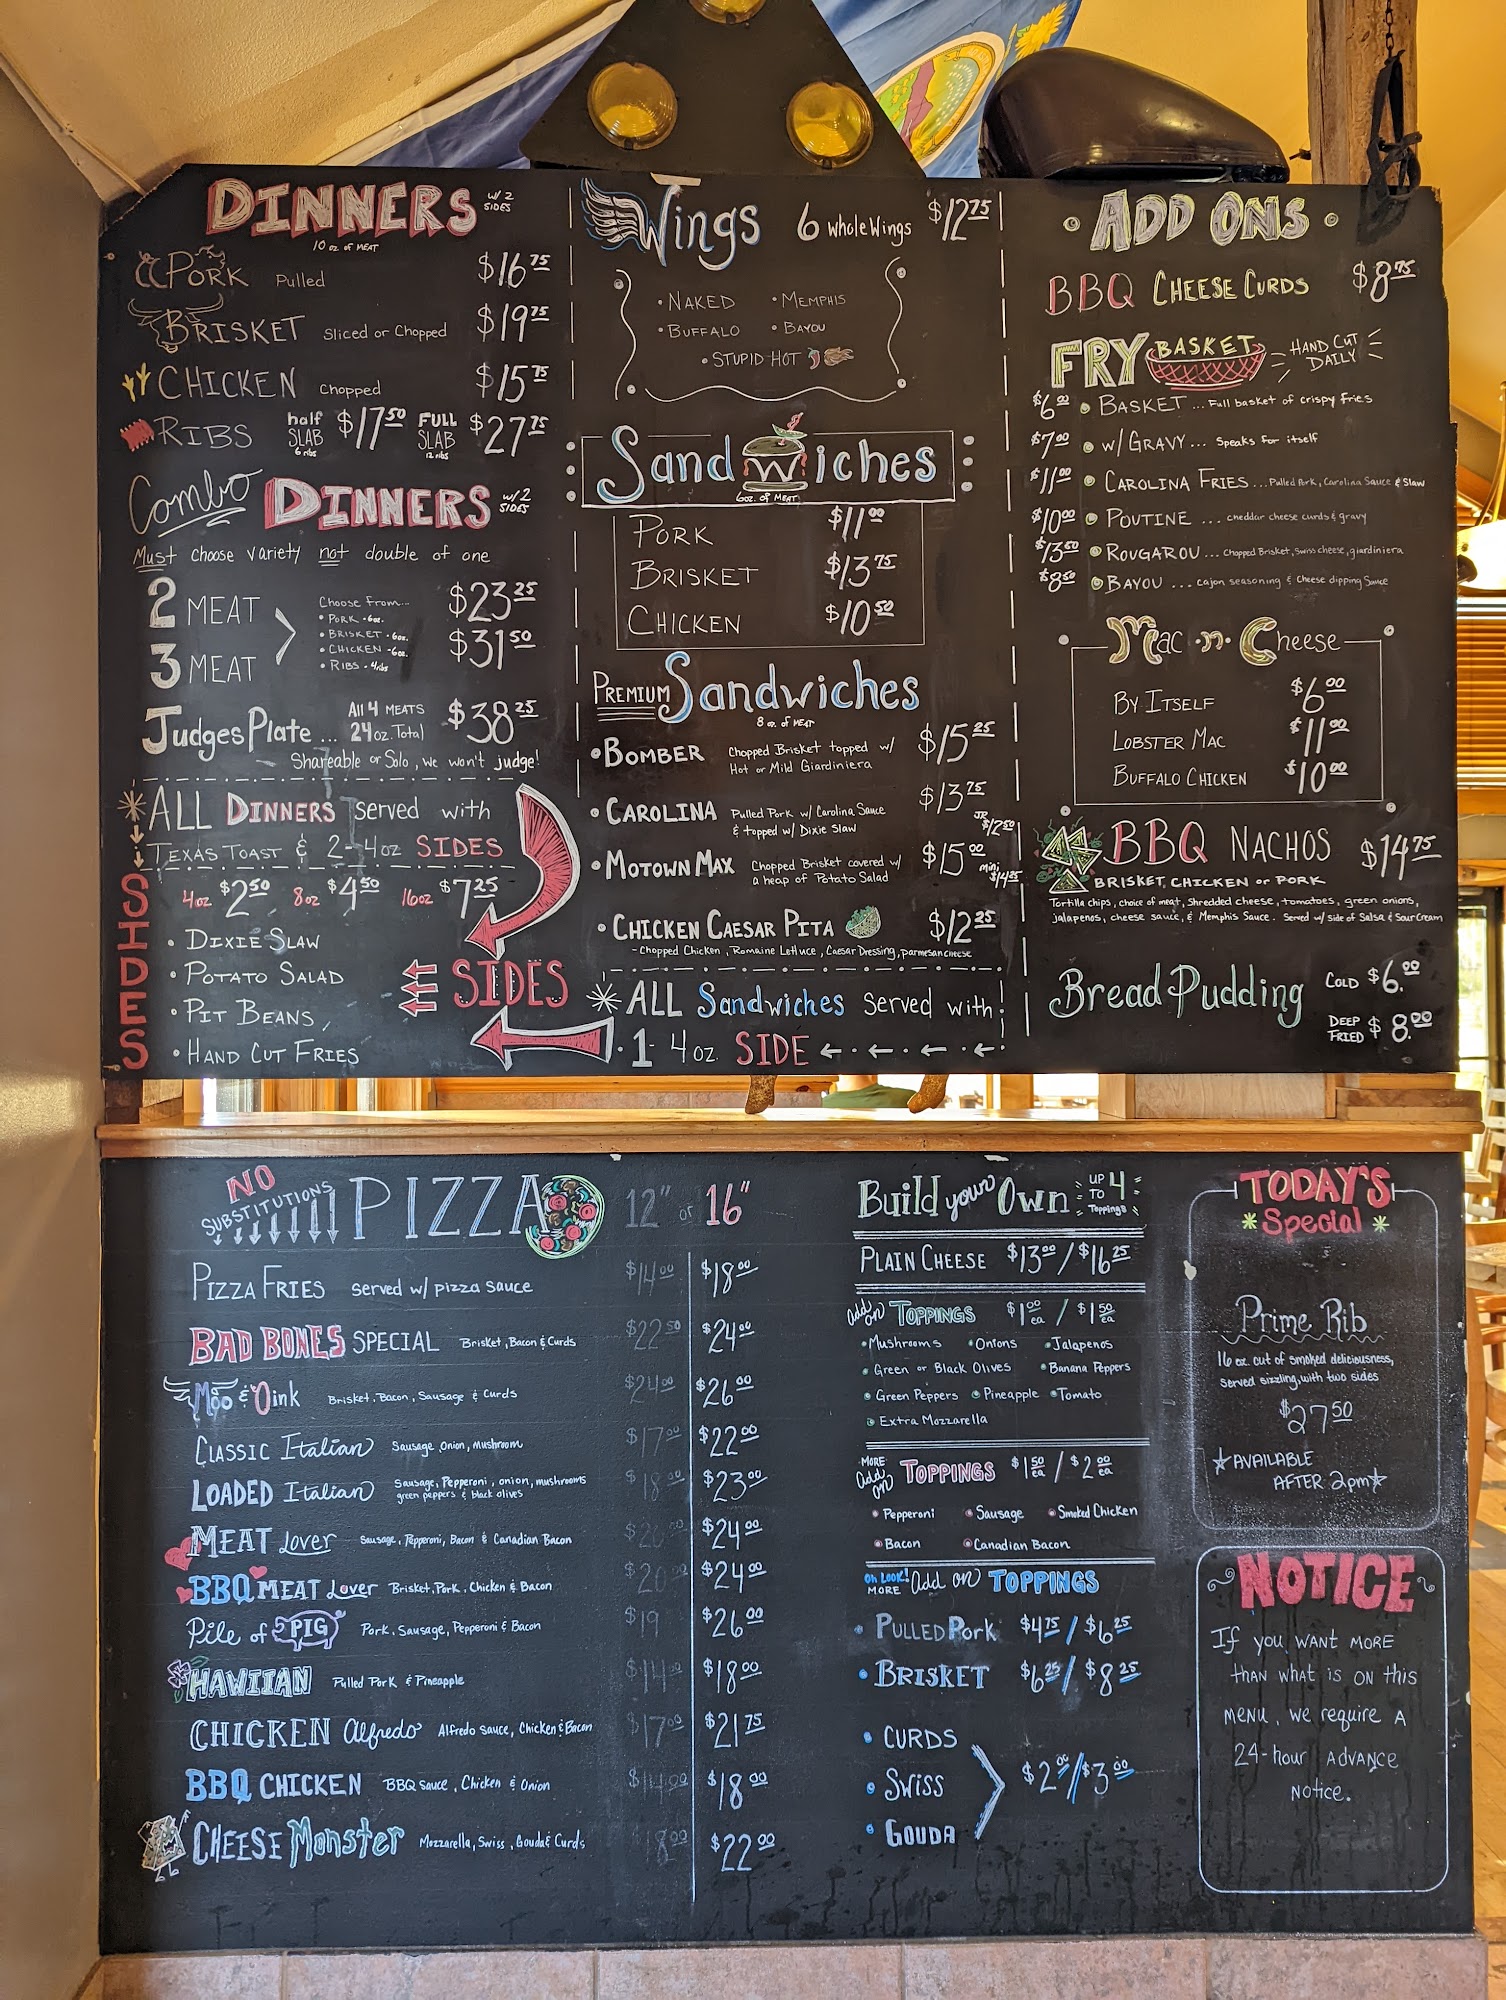 DINNERS w/2 SIDES
10 oz of MEAT
PORK Pulled $16.75
BRISKET Sliced or Chopped $19.75
CHICKEN Chopped $15.75
RIBS half SLAB 6 ribs $17.50 FULL SLAB 12 ribs $27.75
Combo DINNERS w/2 SIDES
Must choose variety not double of one
2 MEAT $23.25
3 MEAT $31.50
Choose From...
• PORK - 6oz.
• BRISKET - 6oz.
• CHICKEN - 6oz.
• RIBS - 4ribs
Judges Plate ... All 4 MEATS 24 oz. Total $38.25
Shareable or Solo, we won't judge!
ALL DINNERS served with
TEXAS TOAST & 2 - 4oz SIDES
SIDES
4oz $2.50 8oz $4.50 16oz $7.25
• DIXIE SLAW
• POTATO SALAD
• PIT BEANS
• HAND CUT FRIES
SIDES
Wings 6 whole Wings $12.75
• NAKED • MEMPHIS
• BUFFALO • BAYOU
• STUPID HOT
Sandwiches
6oz. of MEAT
PORK $11.00
BRISKET $13.75
CHICKEN $10.50
PREMIUM Sandwiches
8 oz. of MEAT
• BOMBER Chopped Brisket topped w/ Hot or Mild Giardiniera $15.25
• CAROLINA Pulled Pork w/ Carolina Sauce & topped w/ Dixie Slaw $13.75 JR $12.50
• MOTOWN MAX Chopped Brisket covered w/ a heap of Potato Salad $15.00 mini $14.25
• CHICKEN CAESAR PITA $12.25
- Chopped Chicken, Romaine Lettuce, Caesar Dressing, parmesan cheese
ALL Sandwiches served with
• 1 - 4 oz. SIDE
• ADD ONS •
BBQ CHEESE CURDS $8.75
FRY BASKET HAND CUT DAILY
$6.00 • BASKET ... Full basket of crispy fries
$7.00 • w/ GRAVY ... Speaks for itself
$11.00 • CAROLINA FRIES ... Pulled Pork, Carolina Sauce & Slaw
$10.00 • POUTINE ... cheddar cheese curds & gravy
$13.50 • ROUGAROU ... Chopped Brisket, Swiss cheese, giardiniera
$8.50 • BAYOU ... cajon seasoning & Cheese dipping Sauce
Mac-n-Cheese
BY ITSELF $6.00
LOBSTER MAC $11.00
BUFFALO CHICKEN $10.00
BBQ NACHOS $14.75
BRISKET, CHICKEN or PORK
Tortilla chips, choice of meat, Shredded cheese, tomatoes, green onions,
jalapenos, cheese sauce, & Memphis Sauce. Served w/ side of Salsa & Sour Cream
Bread Pudding COLD $6.00
DEEP FRIED $8.00
NO SUBSTITUTIONS PIZZA 12" or 16"
PIZZA FRIES served w/ pizza sauce $14.00 $18.00
BAD BONES SPECIAL Brisket, Bacon & Curds $22.50 $24.00
Moo & Oink Brisket, Bacon, Sausage & Curds $24.00 $26.00
CLASSIC Italian Sausage, onion, mushroom $17.00 $22.00
LOADED Italian Sausage, Pepperoni, onion, mushrooms green peppers & black olives $18.00 $23.00
MEAT Lover Sausage, Pepperoni, Bacon & Canadian Bacon $20.00 $24.00
BBQ MEAT Lover Brisket, Pork, Chicken & Bacon $20.00 $24.00
Pile of PIG Pork, Sausage, Pepperoni & Bacon $19 $26.00
HAWIIAN Pulled Pork & Pineapple $14.00 $18.00
CHICKEN Alfredo Alfredo sauce, Chicken & Bacon $17.00 $21.75
BBQ CHICKEN BBQ sauce, Chicken & Onion $14.00 $18.00
CHEESE Monster Mozzarella, Swiss, Gouda & Curds $18.00 $22.00
Build your Own UP TO 4 Toppings
PLAIN CHEESE $13.00 / $16.25
add on TOPPINGS $1.00 ea / $1.50 ea
• Mushrooms • Onions • Jalapenos
• Green or Black Olives • Banana Peppers
• Green Peppers • Pineapple • Tomato
• Extra Mozzarella
MORE add on TOPPINGS $1.50 ea / $2.00 ea
• Pepperoni • Sausage • Smoked Chicken
• Bacon • Canadian Bacon
Oh LOOK! MORE Add on TOPPINGS
• PULLED Pork $4.75 / $6.25
• BRISKET $6.25 / $8.25
• CURDS
• SWISS $2.00 / $3.00
• GOUDA
TODAY'S
Special
Prime Rib
16 oz. cut of smoked deliciousness,
served sizzling, with two sides
$27.50
AVAILABLE
AFTER 2pm
NOTICE
If you WANT MORE
than what is on this
MENU, we require A
24-hour ADVANCE
Notice.